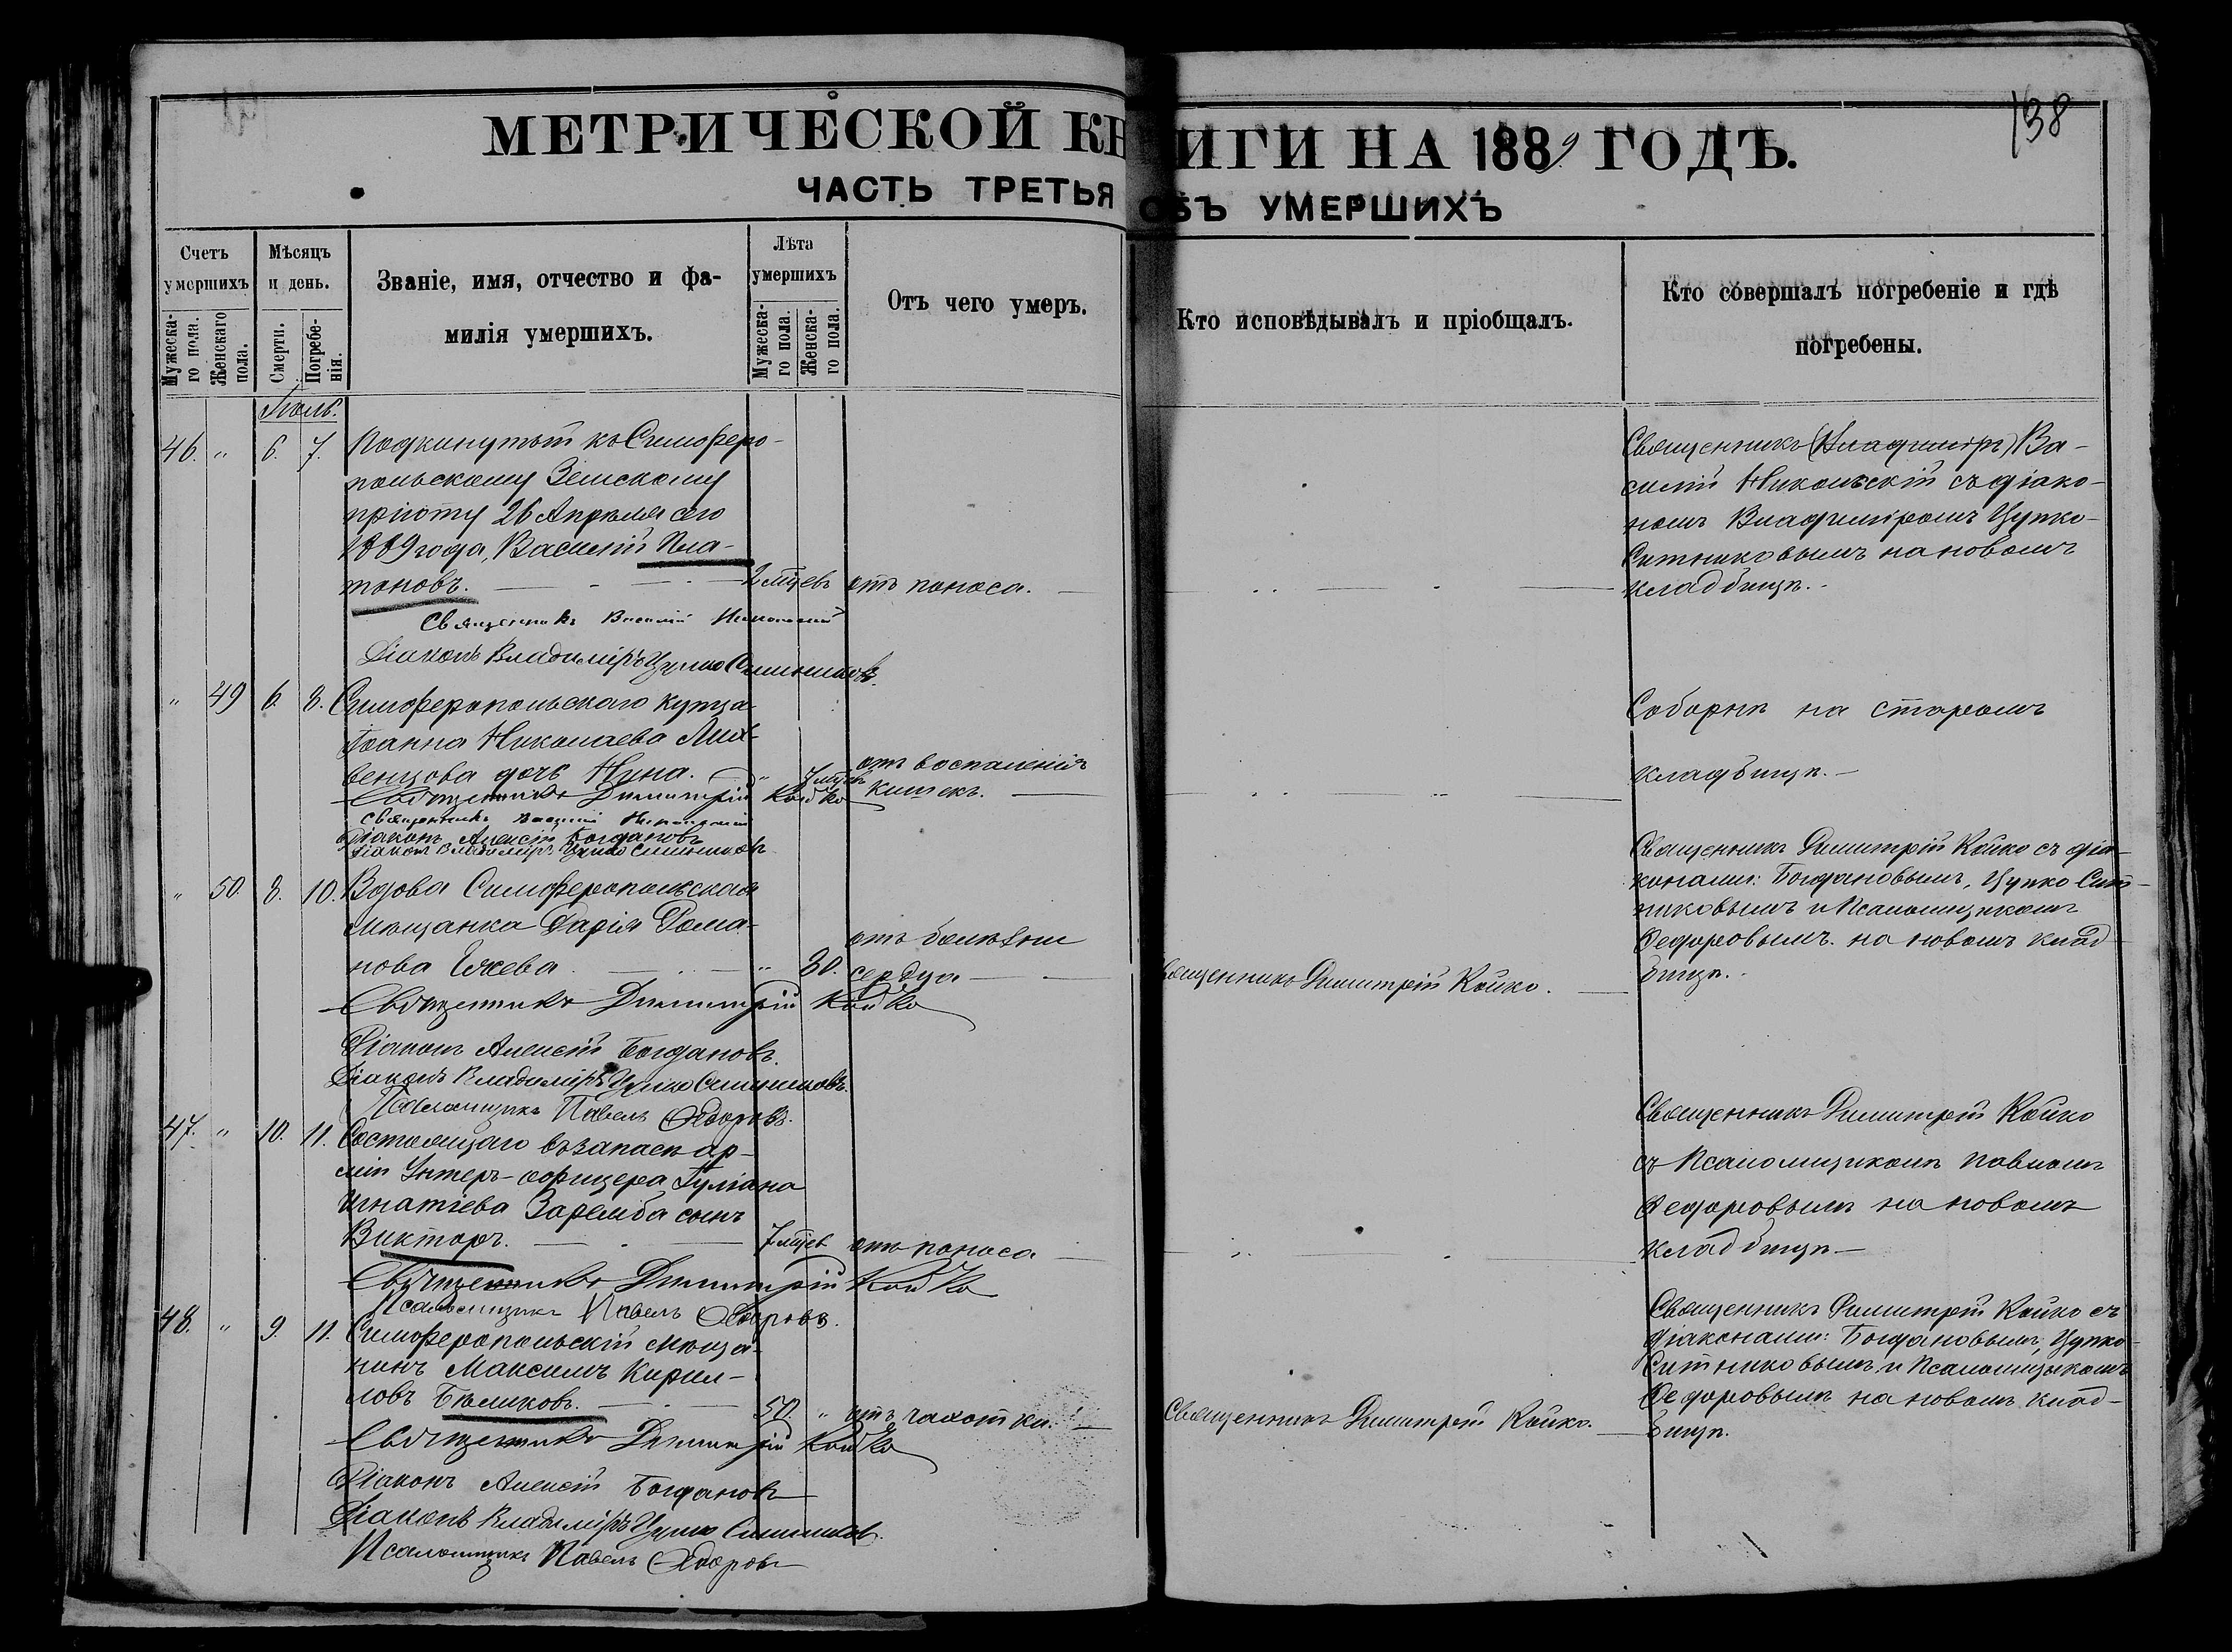 138
МЕТРИЧЕСКОЙ КНИГИ НА 1889 ГОДЪ.
ЧАСТЬ ТРЕТЬЯ ОБЪ УМЕРШИХЪ
Счетъ умершихъ
Мужеска-го пола.
Женскаго пола.
Мѣсяцъ и день.
Смерти.
Погребе-нія.
Званіе, имя, отчество и фа-
милія умершихъ.
Лѣта умершихъ
Мужеска-го пола.
Женска-го пола.
Отъ чего умеръ.
Кто исповѣдывалъ и пріобщалъ.
Кто совершалъ погребеніе и гдѣ
погребены.
Іюль.
46. " 6. 7. Подкинутый къ Симферо-
польскому Земскому
пріюту 26 Апрѣля сего
1889 года, Василій Пла-
тоновъ. 2 мѣ́сцевъ отъ поноса.
Священникъ (Владиміръ) Ва-
силій Никольскій съ діако-
номъ Владиміромъ Цупко-
Ситниковымъ на новомъ
кладбищѣ.
Священникъ Василій Никольскій
Діаконъ Владиміръ Цупко Ситниковъ.
" 49 6. 8. Симферопольскаго купца
Іоанна Николаева
дочь Нина. " 7 мѣсцевъ отъ воспаленія
кишекъ.
Соборнѣ на старомъ
кладбищѣ.
Священникъ Димитрій Койко
Священникъ Василій Никольскій
Діаконъ Алексій Богдановъ
Діаконъ Владиміръ Цупко Ситниковъ
" 50. 8. 10. Вдова Симферопольская
мѣщанка Дарія Рома-
нова Ежева. " 30. отъ болѣзни
сердца
Священникъ Димитрій Койко.
Священникъ Димитрій Койко съ діа-
конами: Богдановымъ, Цупко Сит-
никовымъ и Псаломщикомъ
Ѳедоровымъ на новомъ клад-
бищѣ.
Священникъ Димитрій Койко
Діаконъ Алексій Богдановъ.
Діаконъ Владиміръ Цупко Ситниковъ.
Псаломщикъ Павелъ Ѳедоровъ.
47. " 10. 11. Состоящаго въ запасѣ ар-
міи Унтеръ-офицера Іуліана
Игнатіева Заремба сынъ
Викторъ. 7 мѣсцев отъ поноса
Священникъ Димитрій Койко
съ Псаломщикомъ Павломъ
Ѳедоровымъ на новомъ
кладбищѣ
Священникъ Димитрій Койко
Псаломщикъ Павелъ Ѳедоровъ.
48. " 9. 11. Симферопольскій мѣща-
нинъ Максимъ Кирил-
ловъ Бѣликовъ. 50. " отъ чахотки.
Священникъ Димитрій Койко.
Священникъ Димитрій Койко съ
діаконами: Богдановымъ, Цупко-
Ситниковымъ и Псаломщикомъ
Ѳедоровымъ на новомъ клад-
бищѣ.
Священникъ Димитрій Койко
Діаконъ Алексій Богдановъ
Діаконъ Владиміръ Цупко Ситниковъ.
Псаломщикъ Павелъ Ѳедоровъ